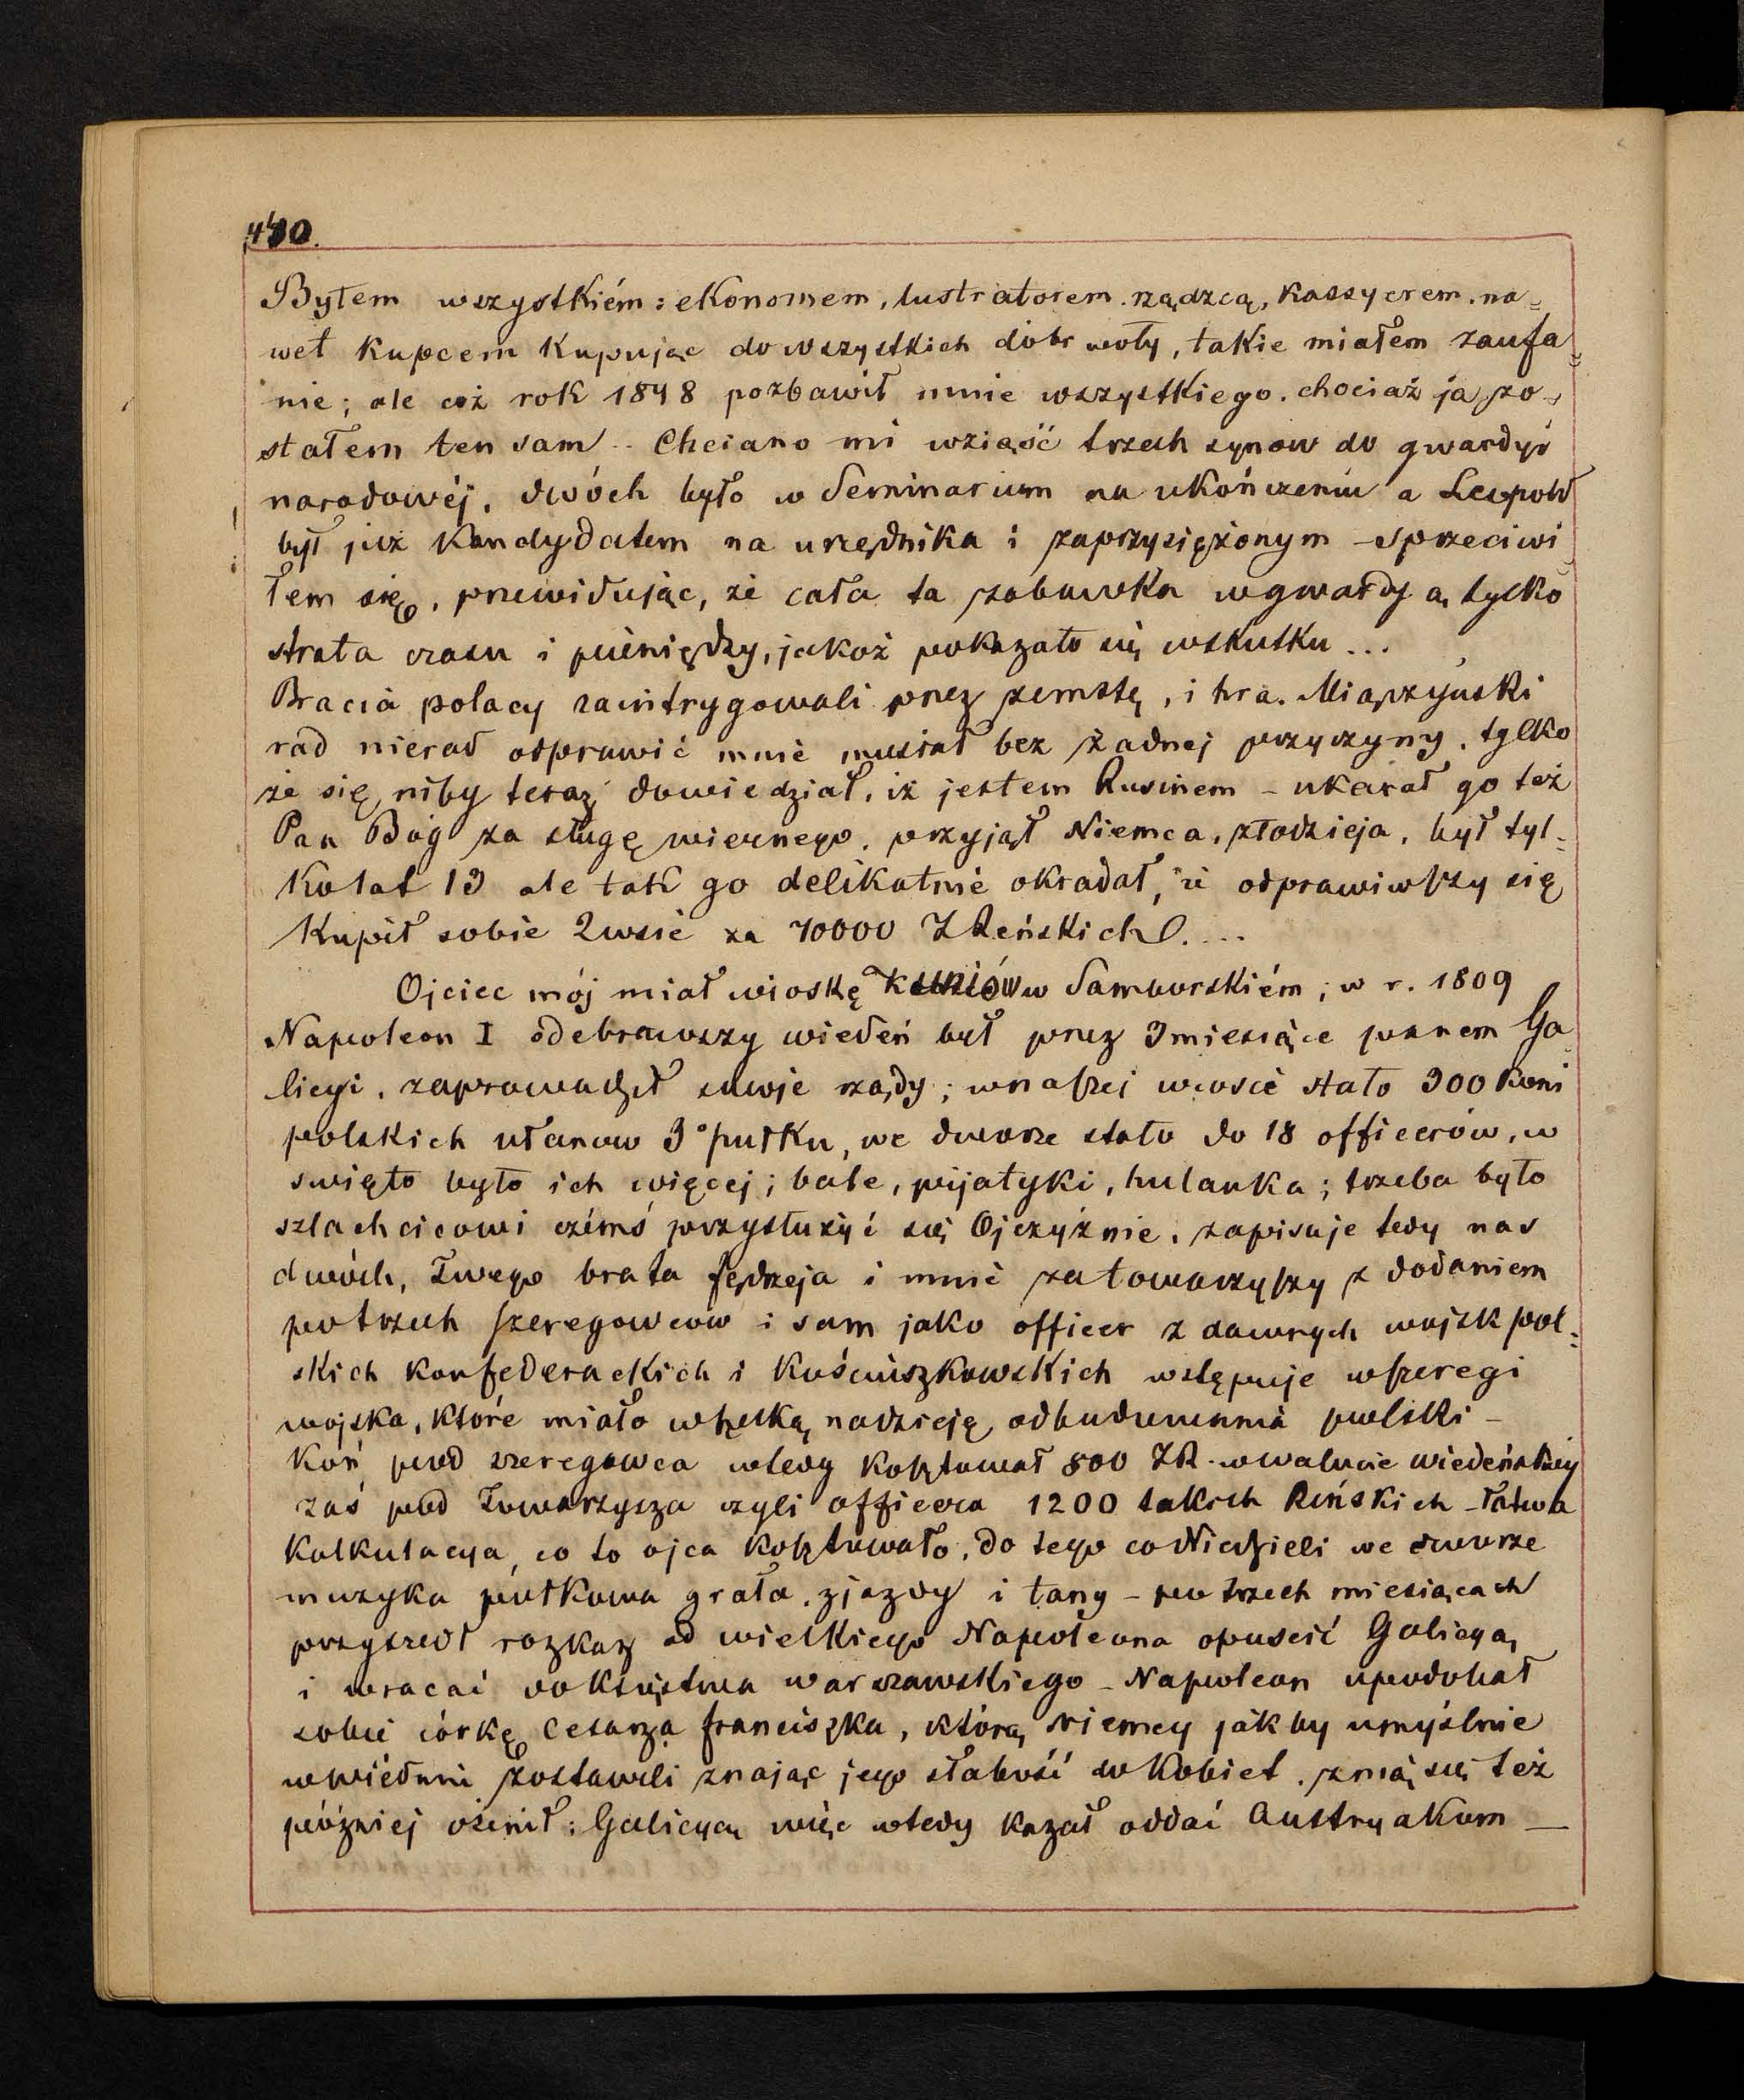 Byłem wszystkiém: ekonomem, lustratorem, rządzcą, kassyerem, na=
wet kupcem kupując do wszystkich dóbr woły, takie miałem zaufa=
nie; ale cóż rok 1848 pozbawił mnie wszystkiego, chociaż ja zo=
stałem ten sam. Chciano mi wziąść trzech synow do gwardyi
narodowéj, dwóch było w Seminarium na ukończeniu a Leopold
był już kandydatem na urzędnika i zaprzysiężonym - sprzeciwi
łem się, prewidując, że cała ta zabawka w gwardyą, tylko
strata czasu i pieniędzy, jakoż pokazało się wskutku ...
Bracia polacy zaintrygowali prez zemstę, i hra. Miączyński
rad nierad odprawić mnie musiał bez żadnej przyczyny, tylko
że się niby teraz dowiedział, iż jestem Rusinem - ukarał go też
Pan Bóg za sługę wiernego, przyjął Niemca, złodzieja, był tyl=
ko lat 13 ale tak go delikatnie okradał, że odprawiwszy się
kupił sobie 2 wsie za 70000 ZReńskich. ...
Ojciec mój miał wioskę w Samborskiém; w r. 1809
Napoleon I odebrawszy wiedeń był prez 3 miesiące panem Ga
licyi, zaprowadził swoje rządy; w naszej wiosce stało 300 koni
polskich ułanow 3° pułku, we dworze stało do 18 officerów, w
swięto było ich więcej; bale, pijatyki, hulanka; trzeba było
szlachcicowi czémś przysłużyć się Ojczyźnie, zapisuje tedy nas
dwóch, Twego brata Jędrzeja i mnie za towarzyszy z dodaniem
po trzech szeregowców i sam jako officer z dawnych wojsk pol=
skich konfederackich i Kościuszkowskich wstępuje w szeregi
wojska, które miało wszelką nadzieję odbudowania polski -
Koń pod szeregowca wtedy kosztował 800 ZR. w walucie wiedeńskiej
zaś pod Towarzysza czyli officera 1200 takich Rińskich - łatwa
kalkulacya, co to ojca kosztowało, do tego co Niedzieli we dworze
muzyka pułkowa grała, zjazdy i tany - po trzech miesiącach
przyszedł rozkaz od wielkiego Napoleona opuscić Galicyą,
i wracać do Księstwa warszawskiego - Napoleon upodobał
sobie córkę Cesarza franciszka, którą niemcy jakby umyślnie
w wiedniu zostawili znając jego słabość do kobiet, z nią się też
póżniej ożenił; Galicyą więc wtedy kazał oddać Austryakom —